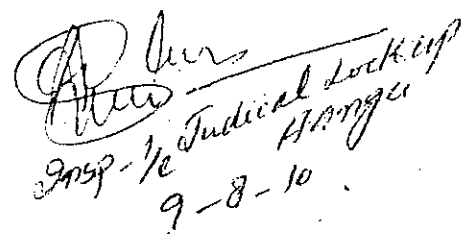 Insp - I/c Judicial Lockup
Hangu
9-8-10